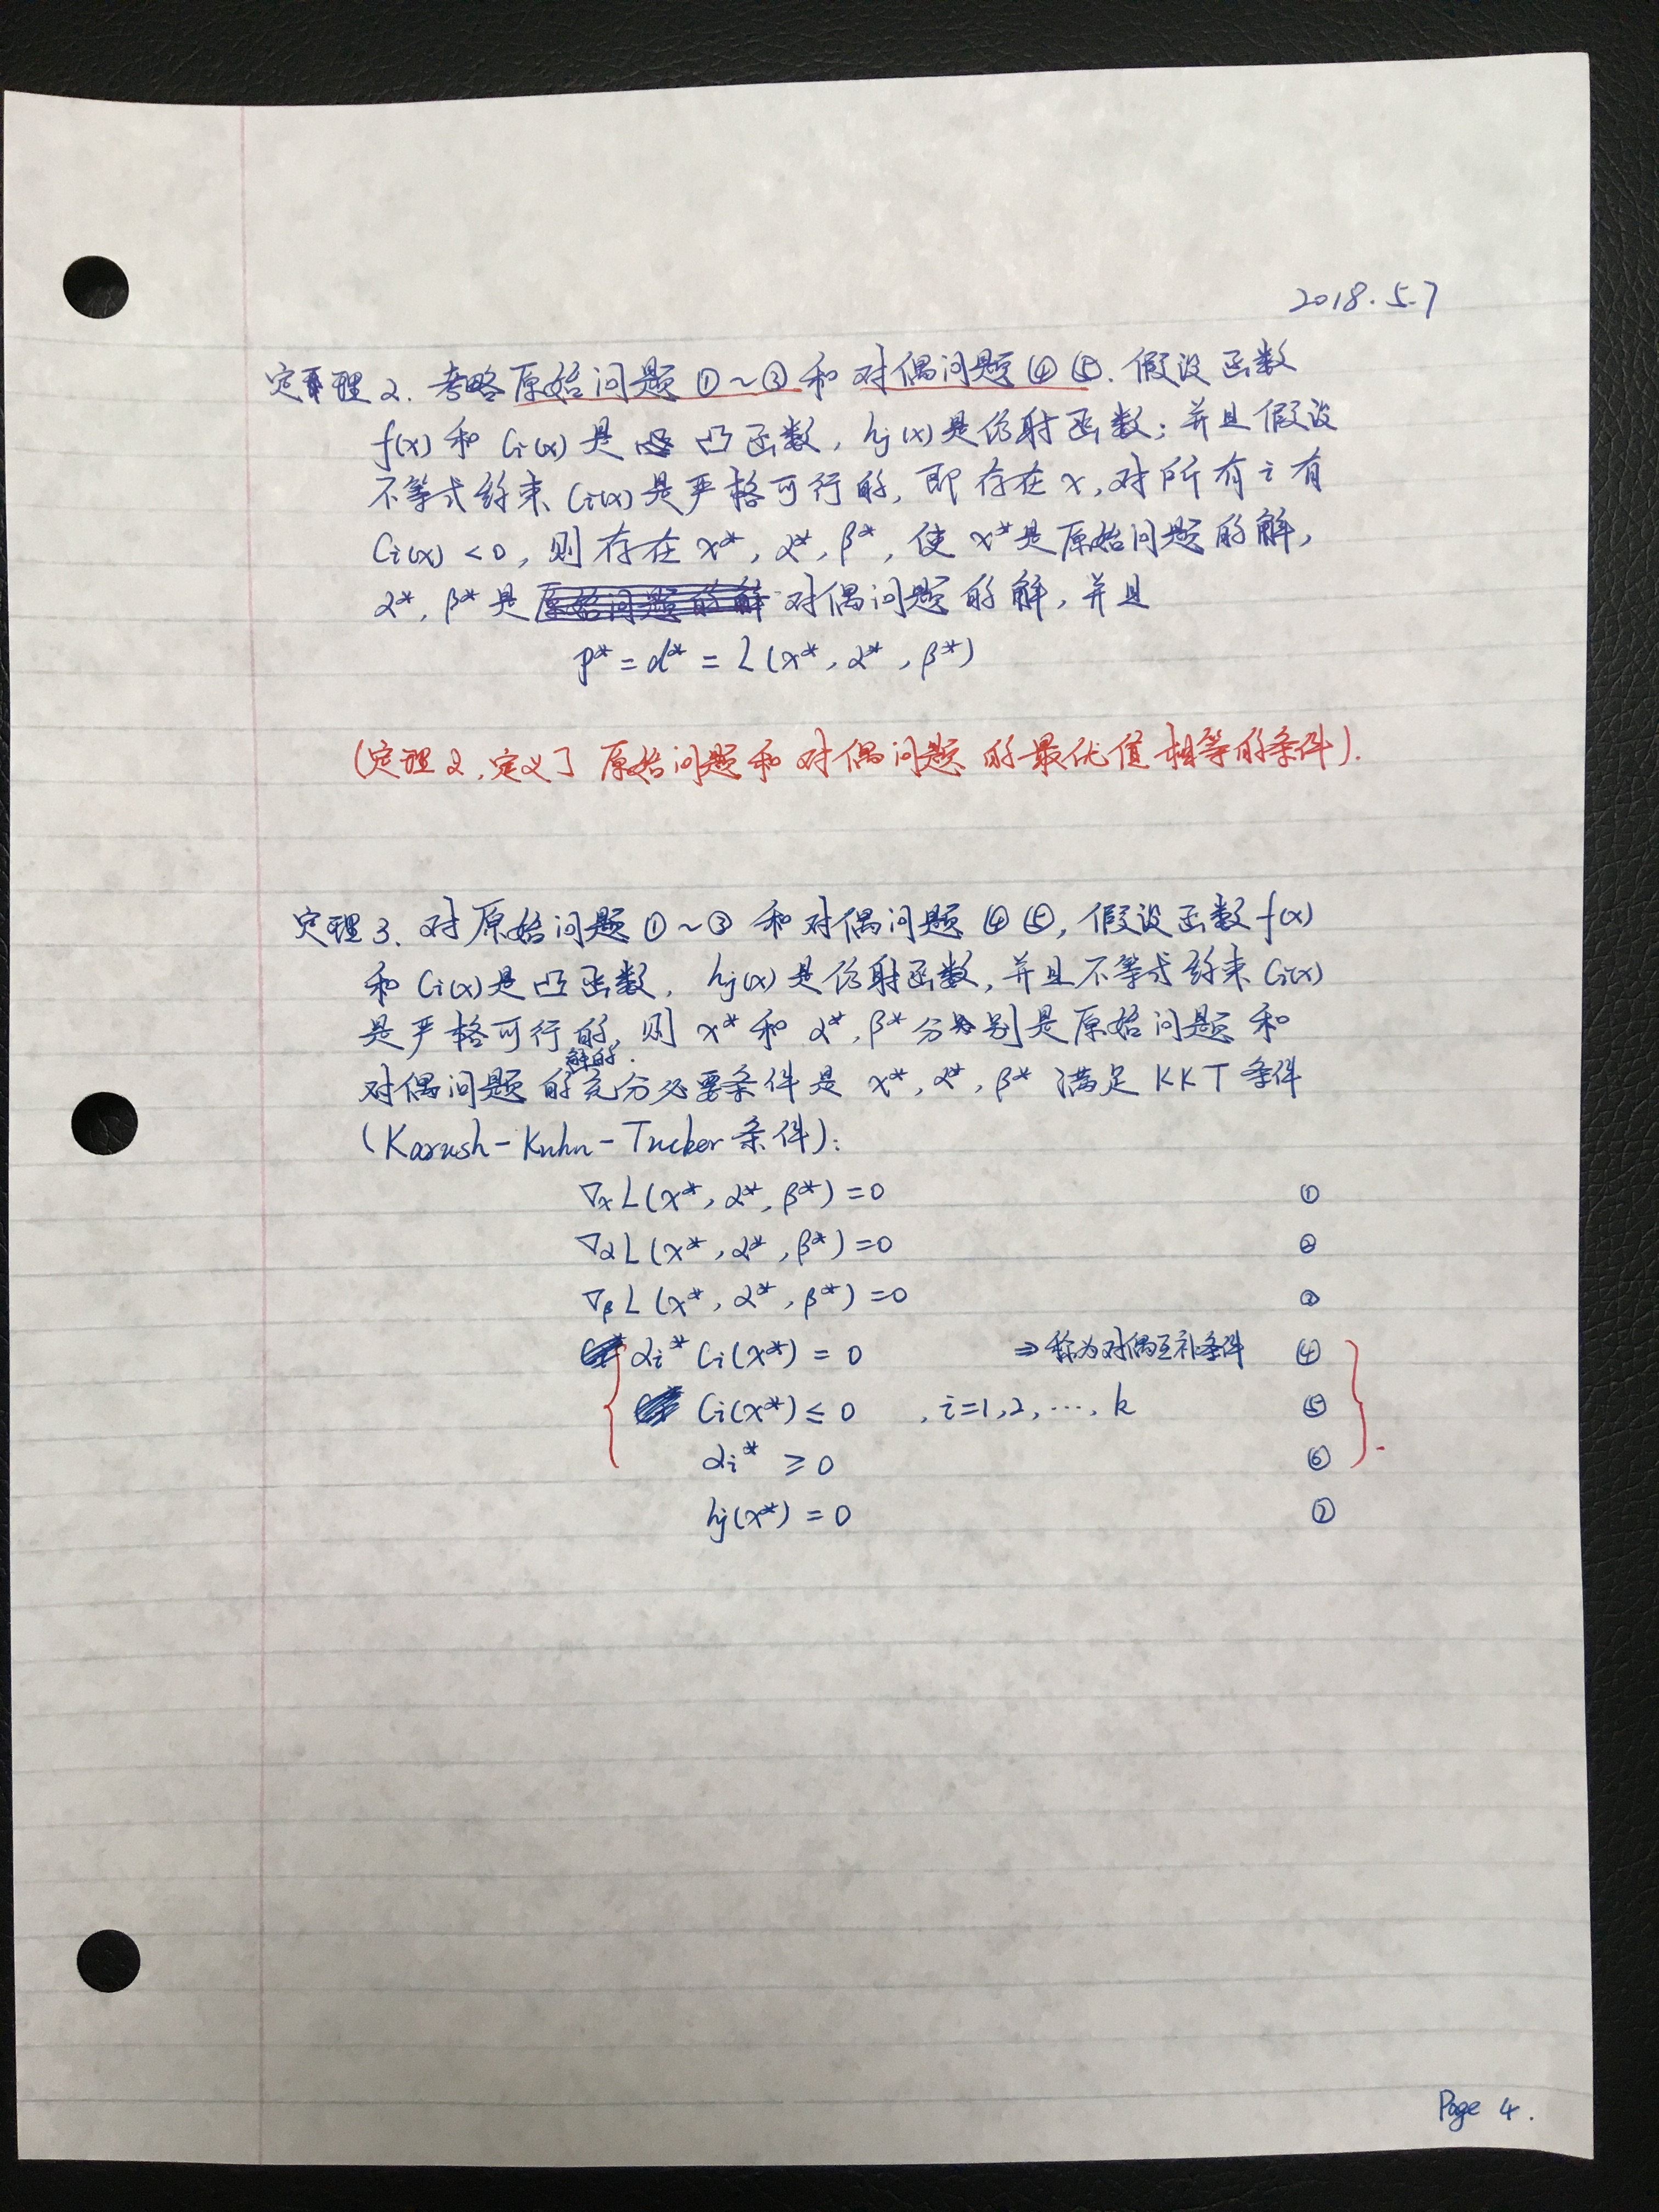 2018.5.7
定理2. 考略原始问题①~③和对偶问题④⑤. 假设函数
f(x) 和 Ci(x) 是 凸函数, hj(x)是仿射函数; 并且假设
不等式约束 Ci(x)是严格可行的, 即存在x, 对所有i有
Ci(x) <0, 则存在 x*, α*, β*, 使 x*是原始问题的解,
α*, β*是原始问题的解 对偶问题的解, 并且
p* = d* = L(x*, α*, β*)
(定理2, 定义了 原始问题和对偶问题 的最优值相等的条件).
定理3. 对原始问题①~③ 和对偶问题 ④⑤, 假设函数f(x)
和 Ci(x)是凸函数, hj(x)是仿射函数, 并且不等式约束Ci(x)
是严格可行的, 则 x* 和 α*, β*分别是原始问题和
解的.
对偶问题的充分必要条件是 x*, α*, β* 满足 KKT 条件
(Karush-Kuhn-Tucker条件):
∇x L(x*, α*, β*) = 0 ①
∇α L(x*, α*, β*) = 0 ②
∇β L(x*, α*, β*) = 0 ③
αi* Ci(x*) = 0 ⇒称为对偶互补条件 ④
Ci(x*) ≤ 0 , i=1,2, ⋯, k ⑤
αi* ≥ 0 ⑥
hj(x*) = 0 ⑦
Page 4.